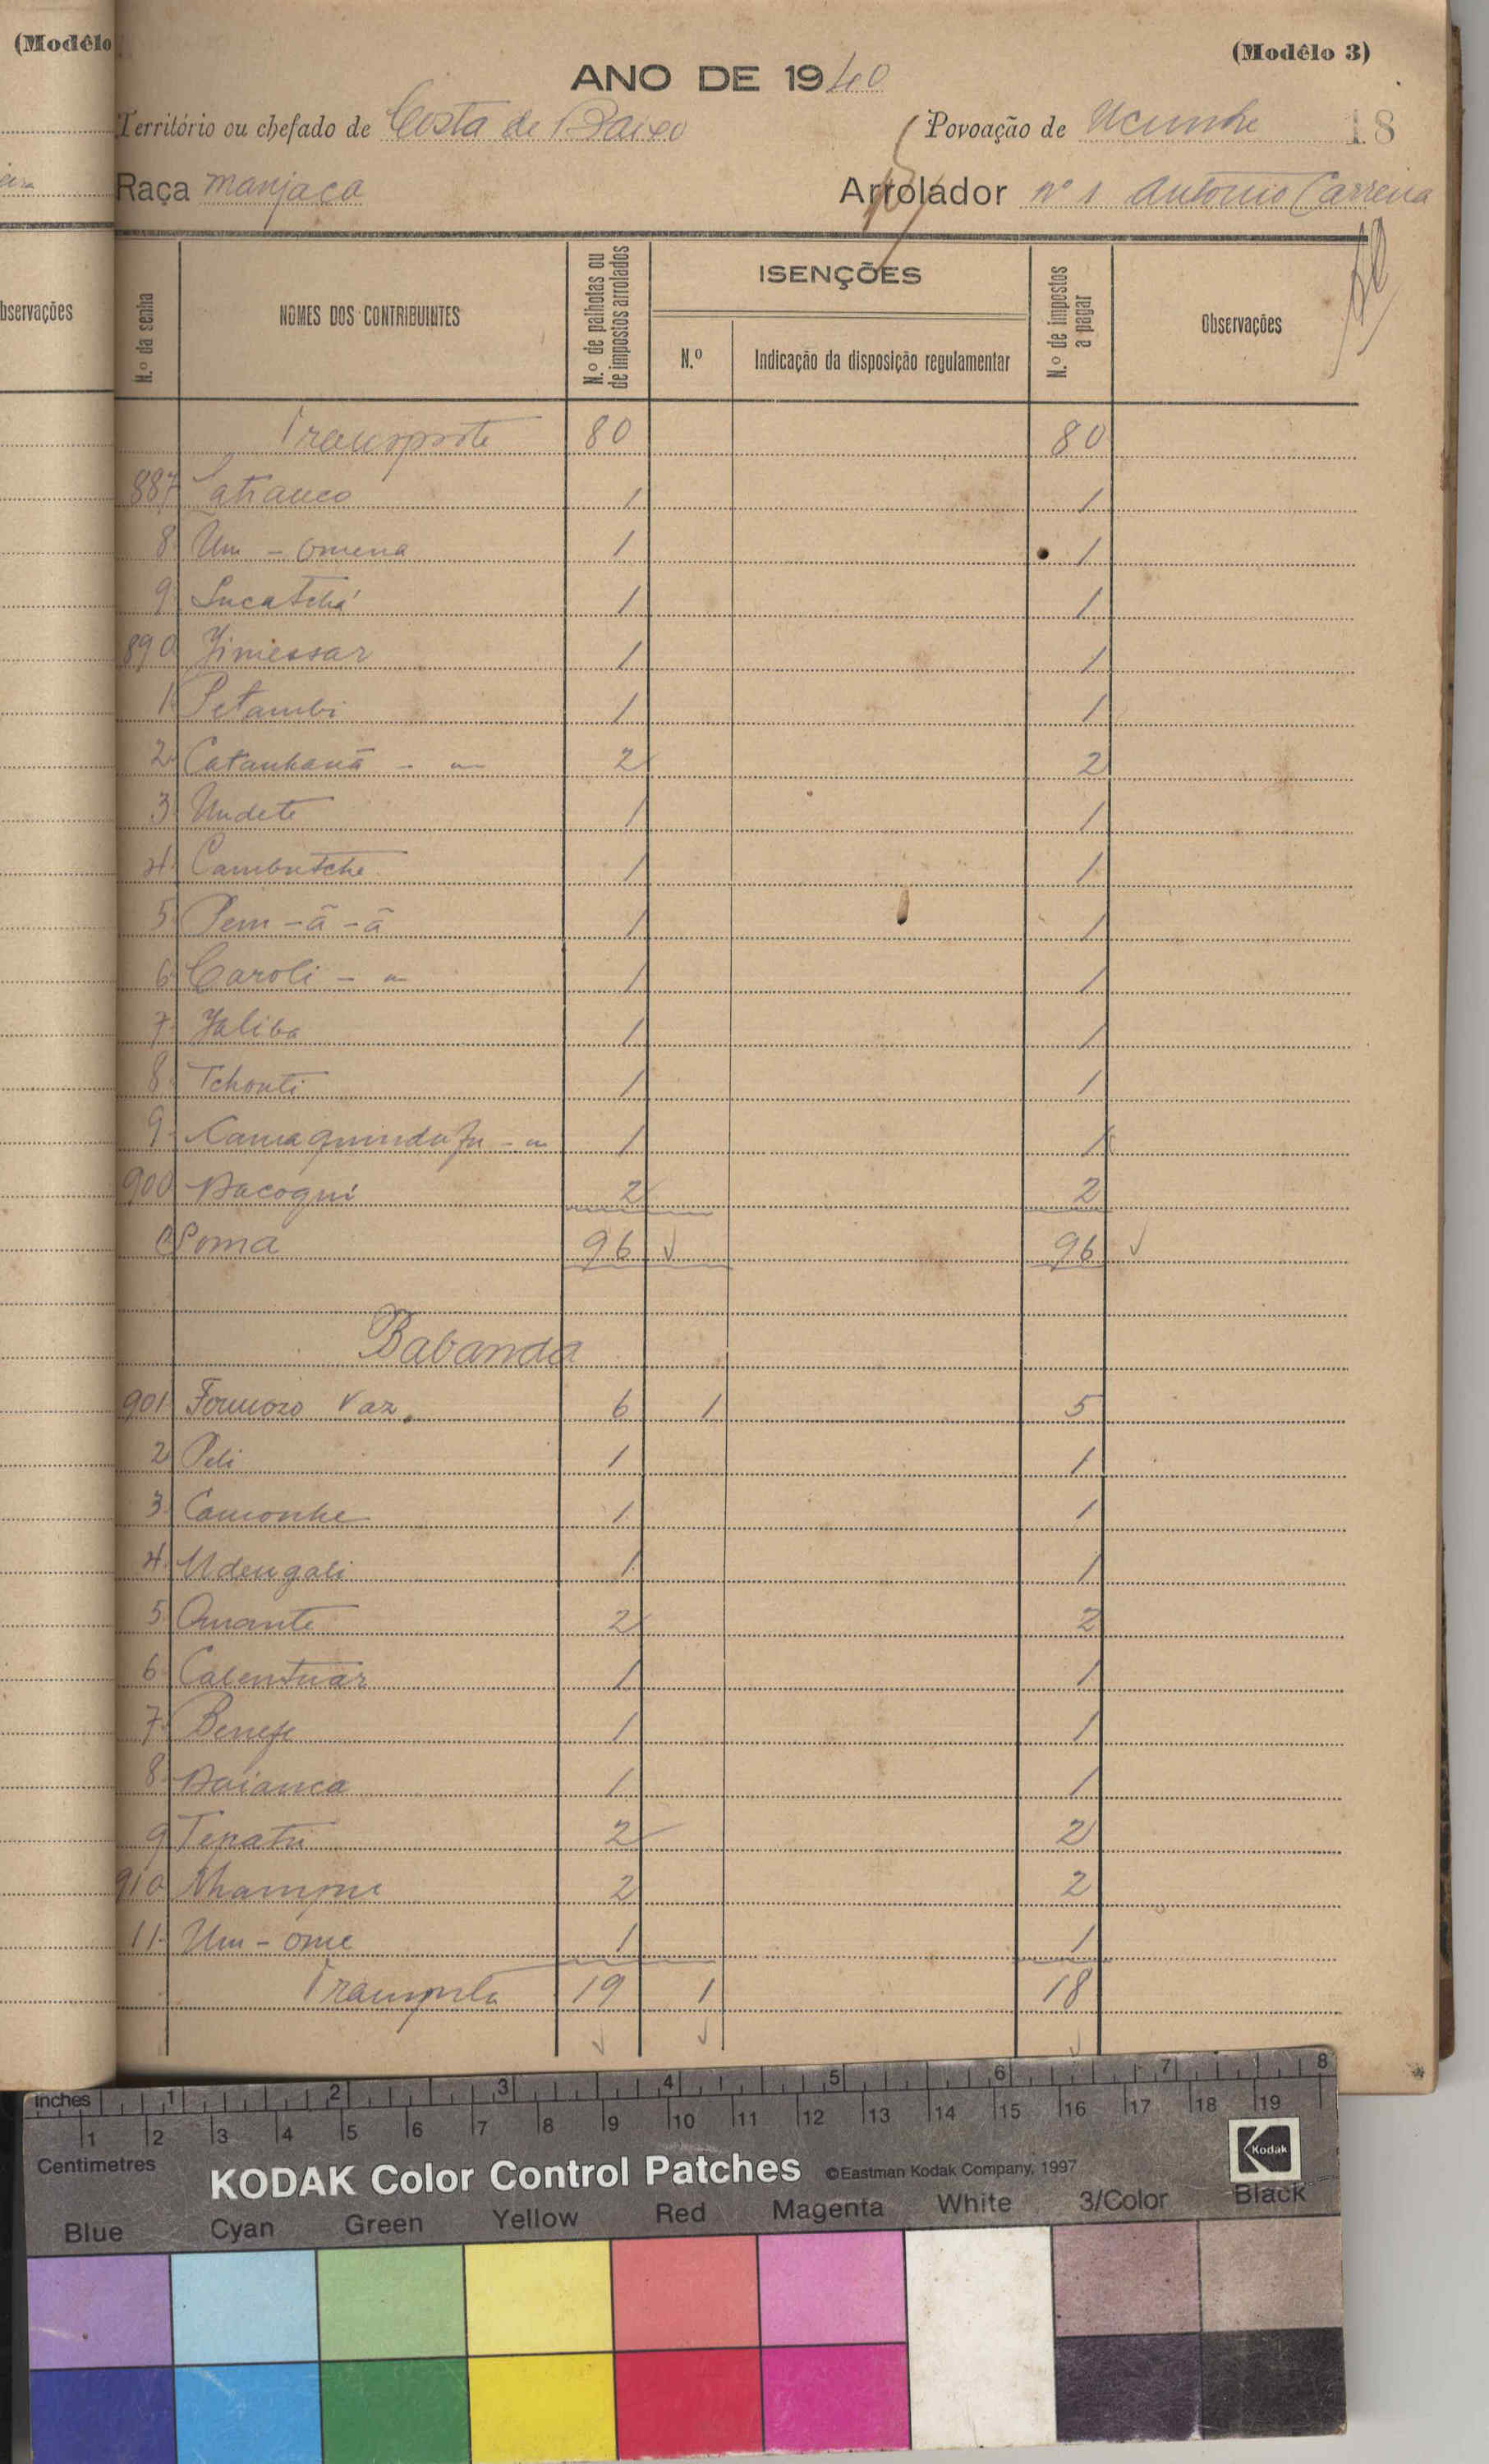 (Modêlo
(Modêlo 3)
ANO DE 1940
Território ou chefado de Costa de Baixo Povoação de Ucunhe 18
Raça manjaca Arrolador nº 1 Antonio Carreira
bservações
N.º da senha NOMES DOS CONTRIBUINTES N.º de palhotas ou de impostos arrolados ISENÇÕES N.º de impostos a pagar Observações
N.º Indicação da disposição regulamentar
Transporte 80 80
887 1 1
8 Um - omena 1 1
9 Lucatchá 1 1
890 Jimessar 1 1
1 Petambi 1 1
2 Catanhanã - 2 2
3 Undete 1 1
4 Cambutche 1 1
5 Pem - ã - ã 1 1
6 Caroli - 1 1
7 Jaliba 1 1
8 Tchonti 1 1
9 1 1
900 Dacogui 2 2
Soma 96 96
Babanda
901 Formozo Vaz. 6 1 5
2 Peli 1 1
3 Camonhe 1 1
4 Udengali 1 1
5 Quante 2 2
6 Calentuar 1 1
7 1 1
8 Daianca 1 1
9 Tepatu 2 2
910 2 2
11 Um - ome 1 1
Transporte 19 1 18
inches 1 2 3 4 5 6 7 8
1 2 3 4 5 6 7 8 9 10 11 12 13 14 15 16 17 18 19
Centimetres
KODAK Color Control Patches ©Eastman Kodak Company, 1997 Kodak
Blue Cyan Green Yellow Red Magenta White 3/Color Black